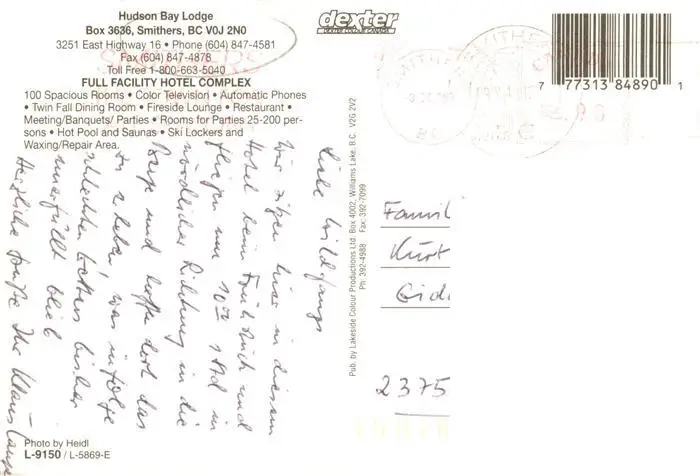 Hudson Bay Lodge
Box 3636, Smithers, BC V0J 2N0
3251 East Highway 16 • Phone (604) 847-4581
Fax (604) 847-4878
Toll Free 1-800-663-5040
FULL FACILITY HOTEL COMPLEX
100 Spacious Rooms • Color Television • Automatic Phones
• Twin Fall Dining Room • Fireside Lounge • Restaurant •
Meeting/Banquets/ Parties • Rooms for Parties 25-200 per-
sons • Hot Pool and Saunas • Ski Lockers and
Waxing/Repair Area.
dexter
DEXTER COLOUR CANADA
7 77313 84890 1
Liebe Wildfangs
Wir sitzen hier in diesem
Hotel beim Frühstück und
fliegen um 10 00 in
nördlicher Richtung in die
Berge und hoffe dort das
zu erleben, was infolge
schlechten Wetters bisher
unerfüllt blieb
Herzliche Grüße Ihr Klaus Lange
Pub. by Lakeside Colour Productions Ltd. Box 4002, Williams Lake, B.C. V2G 2V2
Ph 392-4988 Fax: 392-7099
Famil
Kurt
2375
Photo by Heidl
L-9150 / L-5869-E